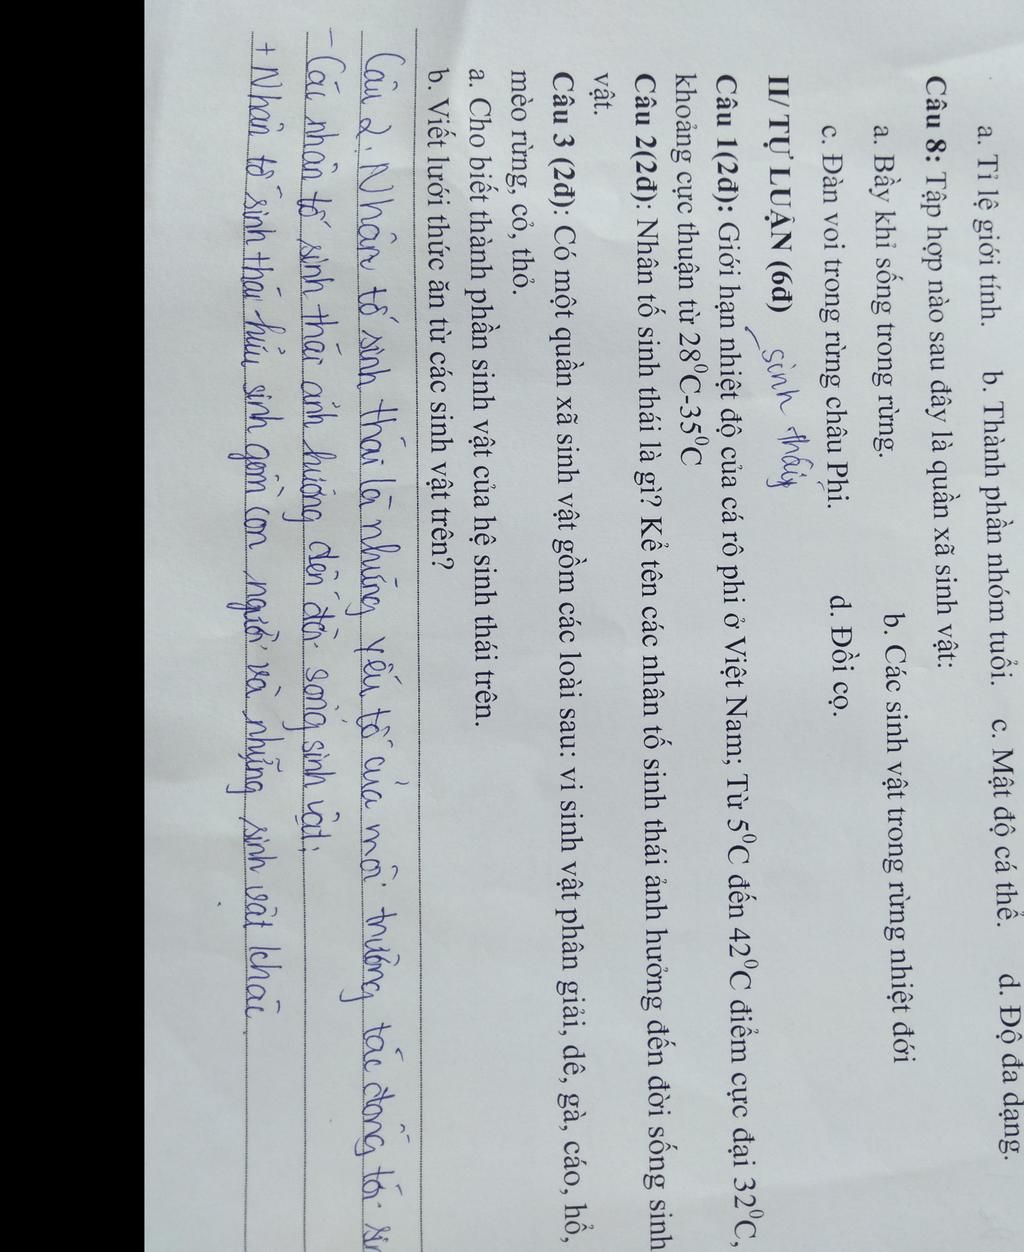 a. Tỉ lệ giới tính. b. Thành phần nhóm tuổi. c. Mật độ cá thể. d. Độ đa dạng.
Câu 8: Tập hợp nào sau đây là quần xã sinh vật:
a. Bầy khỉ sống trong rừng. b. Các sinh vật trong rừng nhiệt đới
c. Đàn voi trong rừng châu Phi. d. Đồi cọ.
II/ TỰ LUẬN (6đ)
sinh thái
Câu 1(2đ): Giới hạn nhiệt độ của cá rô phi ở Việt Nam; Từ 5⁰C đến 42⁰C điểm cực đại 32⁰C,
khoảng cực thuận từ 28⁰C-35⁰C
Câu 2(2đ): Nhân tố sinh thái là gì? Kể tên các nhân tố sinh thái ảnh hưởng đến đời sống sinh
vật.
Câu 3 (2đ): Có một quần xã sinh vật gồm các loài sau: vi sinh vật phân giải, dê, gà, cáo, hổ,
mèo rừng, cỏ, thỏ.
a. Cho biết thành phần sinh vật của hệ sinh thái trên.
b. Viết lưới thức ăn từ các sinh vật trên?
Câu 2. Nhân tố sinh thái là những yếu tố của môi trường tác động tới
- Các nhân tố sinh thái ảnh hưởng đến đời sống sinh vật:
+ Nhân tố sinh thái hữu sinh gồm con người và những sinh vật khác